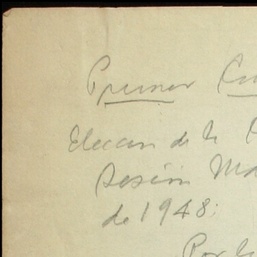 Primer
Eleccion de la
Sesión
de 1948.
Por